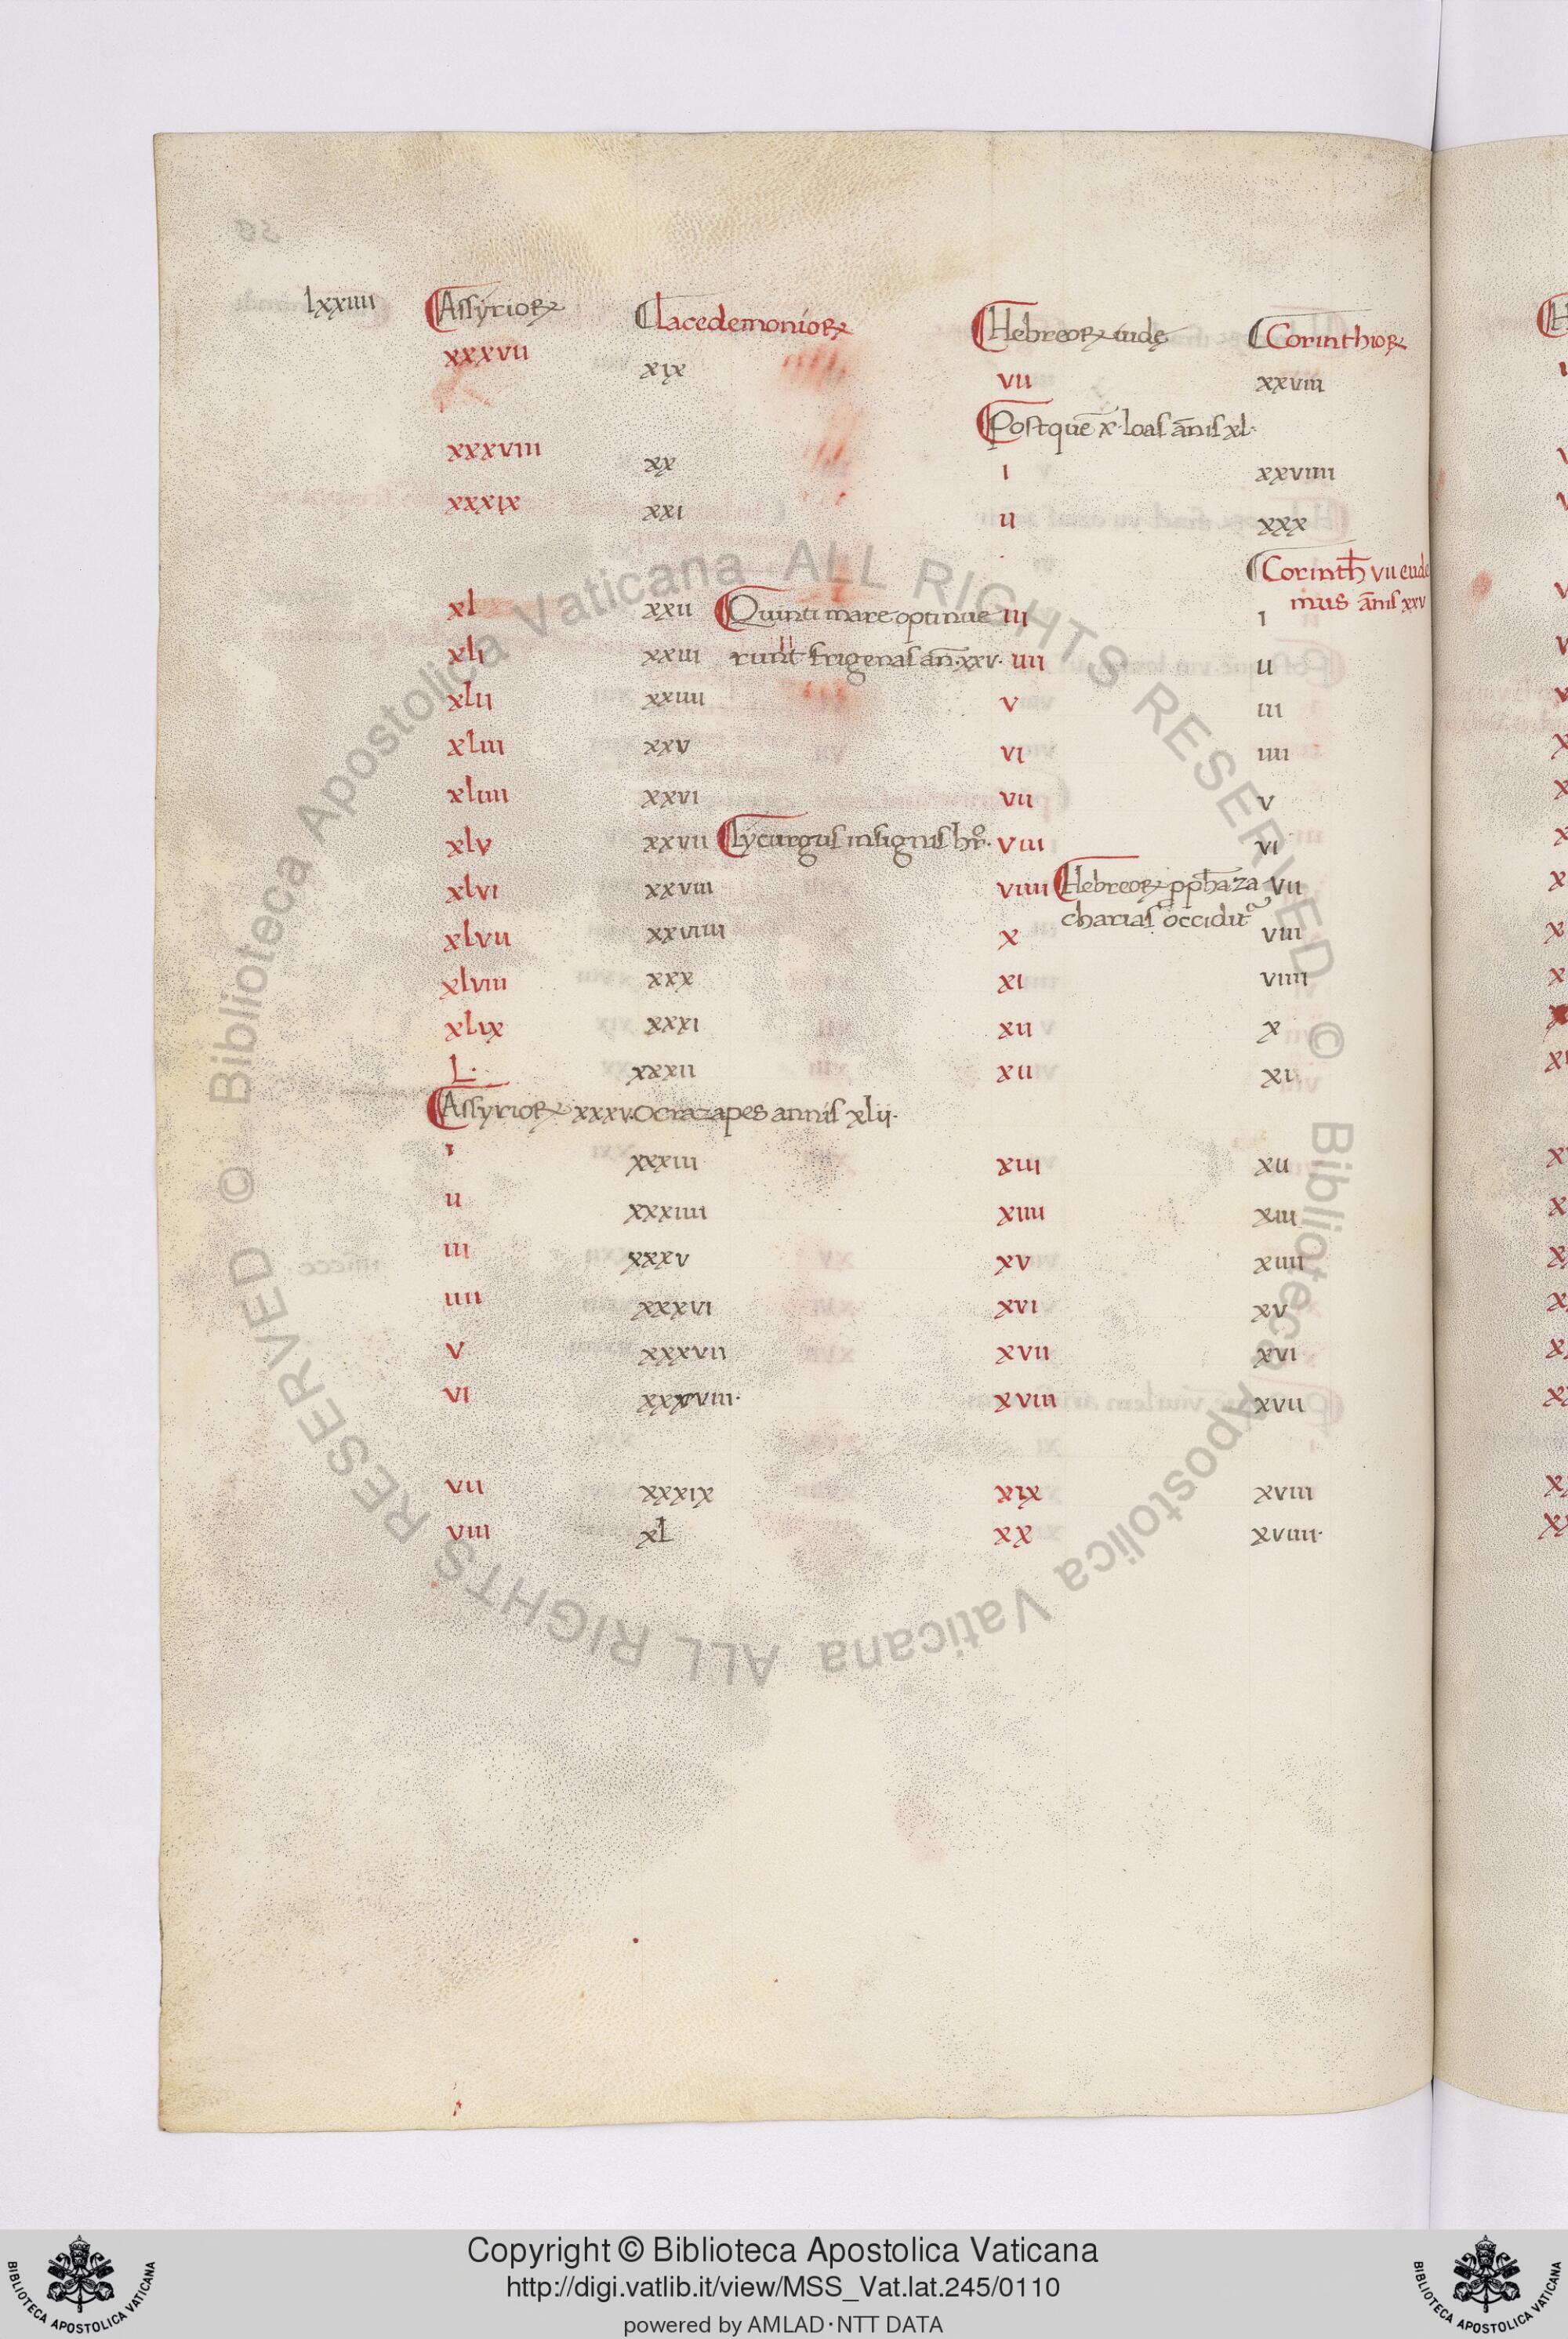 lxxiiii Assyrioꝝ Lacedemonioꝝ Hebreoꝝ iudę Corinthioꝝ
xxxvii xix vii xxviii
Post que x·Ioas ānis xl·
xxxviii xx i xxviiii
xxxix xxi ii xxx
Corinth vii eude
mus ānis xxv
xl xxii Quinti mare optinue iii i
xli xxiii runt frigenas an̄·xxv· iiii ii
xlii xxiiii v iii
xliii xxv vi iiii
xliiii xxvi vii v
xlv xxvii Lycurgus insignis hr̄· viii vi
xlvi xxviii viiii Hebreoꝝ ppha·za vii
charias occidit᷒ 
xlvii xxviiii x viii
xlviii xxx xi viiii
xlix xxxi xii x
L· xxxii xii xi
Assyrioꝝ xxxv·Ocrazapes annis xlii·
i xxxiii xiii xii
ii xxxiiii xiiii xiii
iii xxxv xv xiiii
iiii xxxvi xvi xv
v xxxvii xvii xvi
vi xxxviii· xviii xvii
vii xxxix xix xviii
viii xl xx xviiii·
© Biblioteca Apostolica Vaticana ALL RIGHTS RESERVED
© Biblioteca Apostolica Vaticana ALL RIGHTS RESERVED
Copyright © Biblioteca Apostolica Vaticana
http://digi.vatlib.it/view/MSS_Vat.lat.245/0110
powered by AMLAD·NTT DATA
BIBLIOTECA APOSTOLICA VATICANA
BIBLIOTECA APOSTOLICA VATICANA